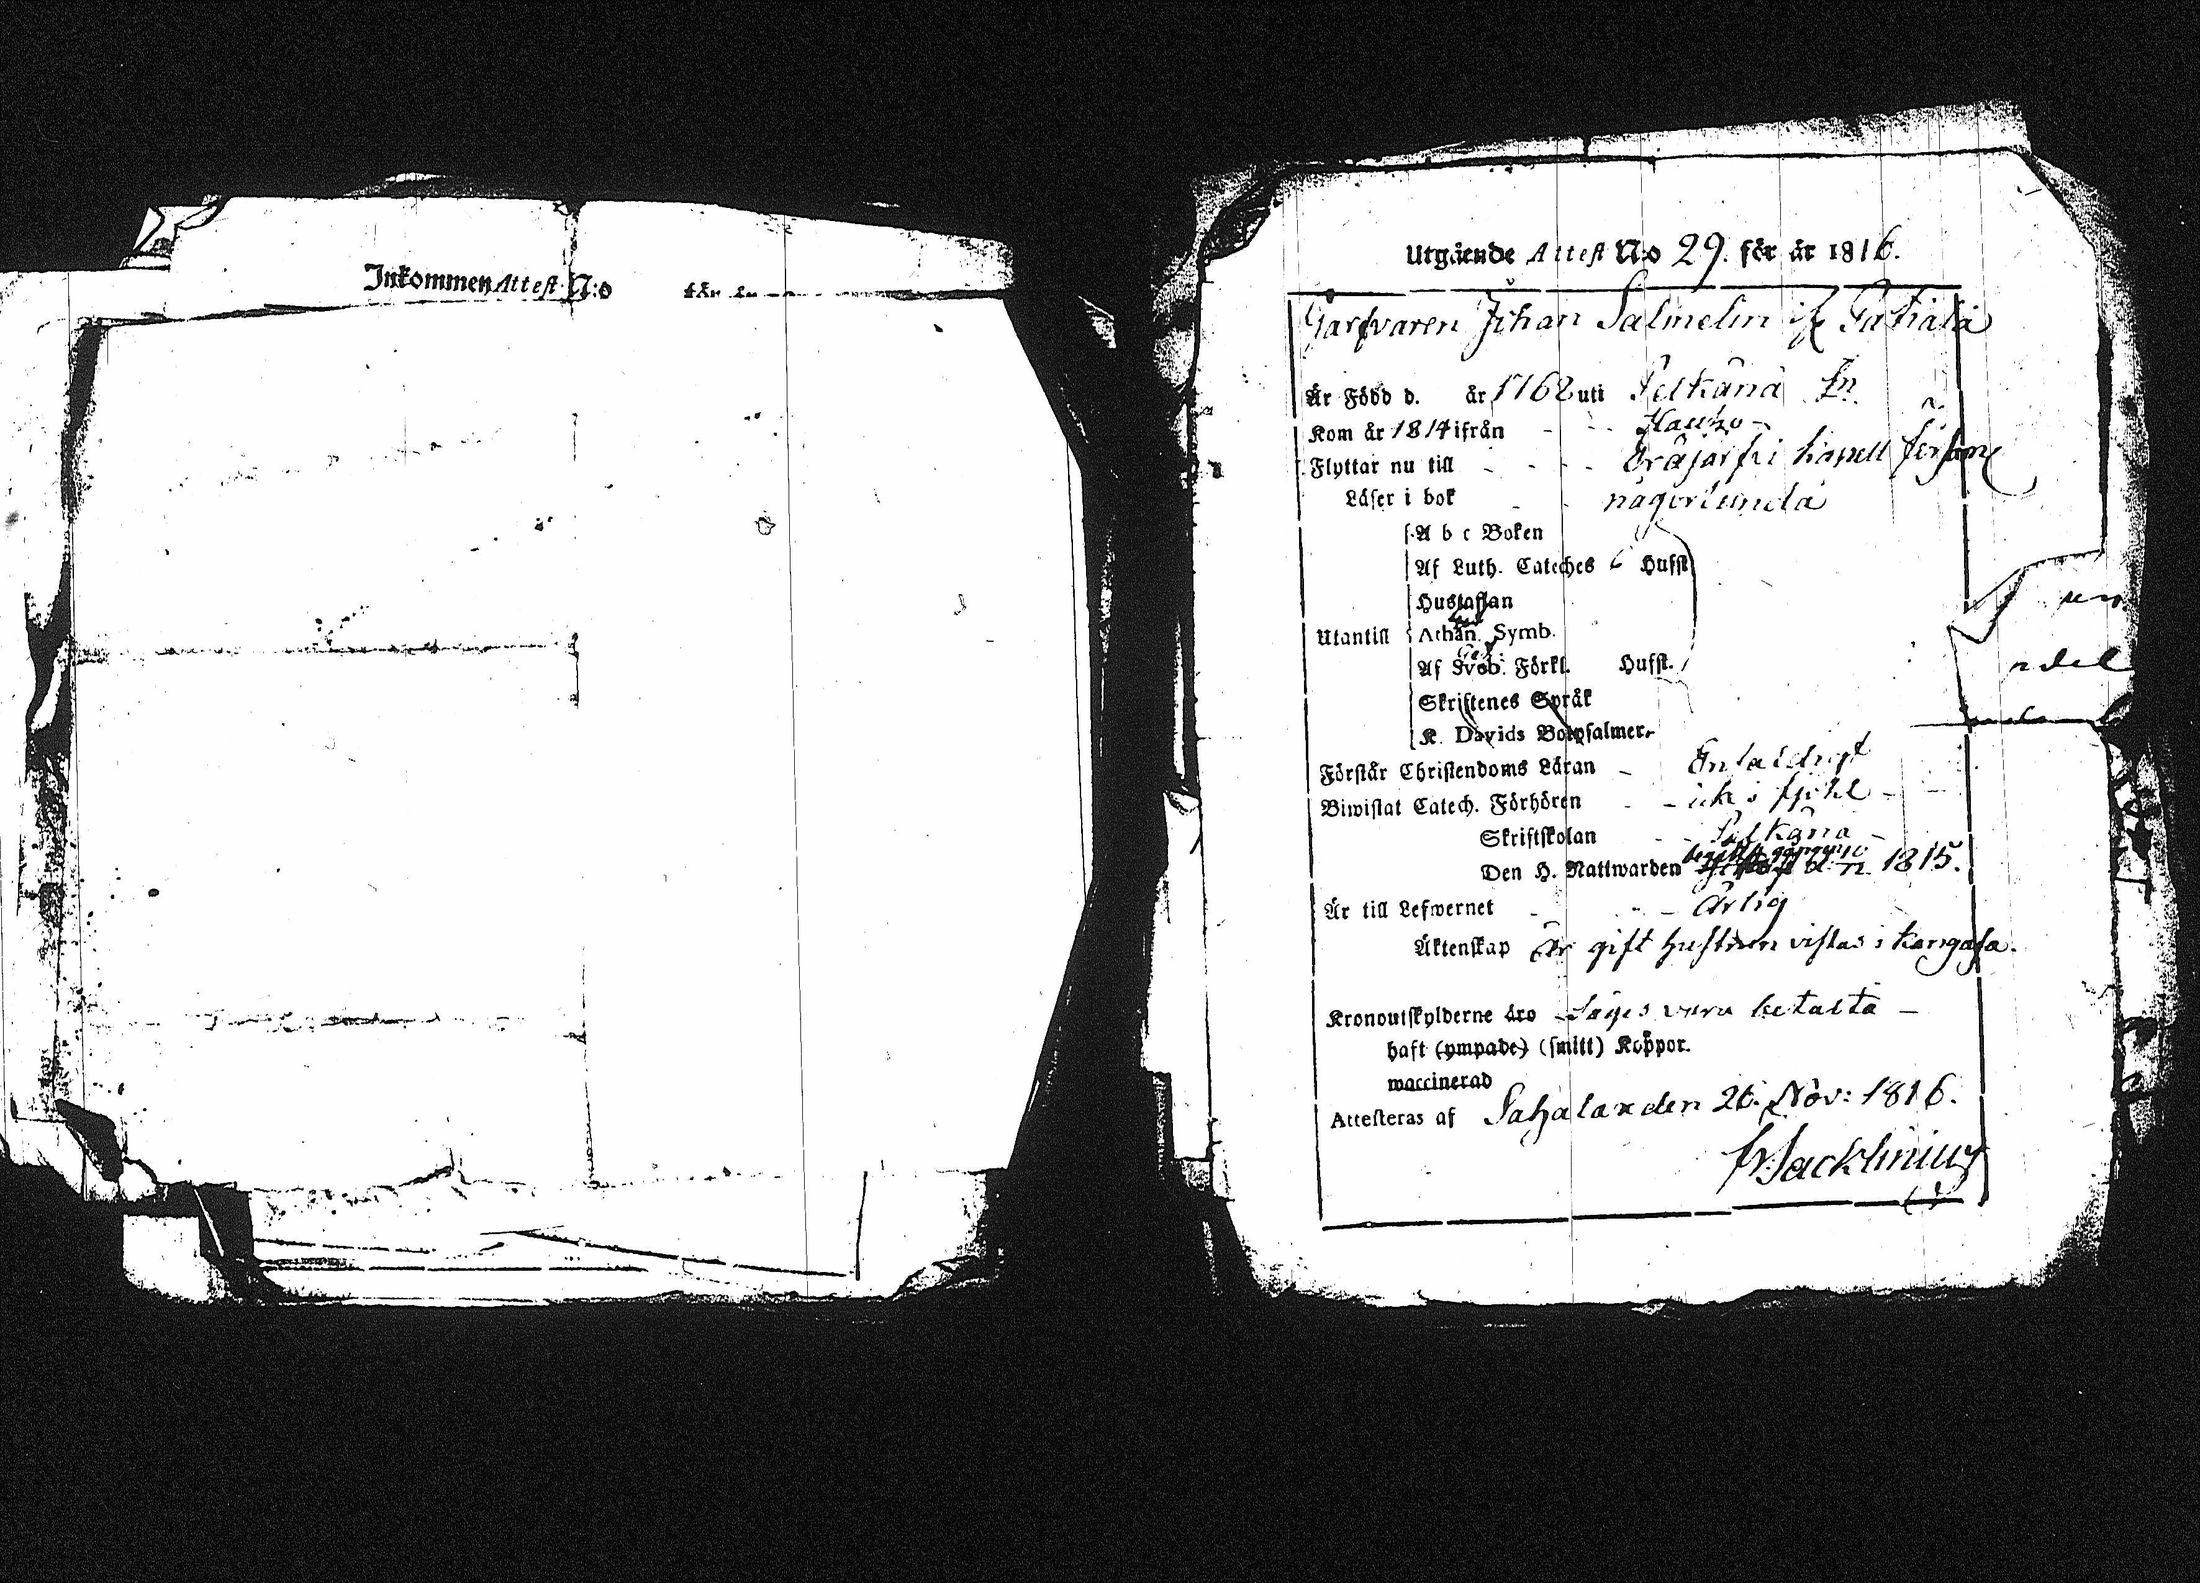 Inkommen Attest N:o för år
Utgående Attest N:o 29. för år 1816.
Garfvaren Johan Salmelin if
Är Född d. år 1762 uti Pelkäna Sn.
Kom år 1814 ifrån - - Hauho -
Flyttar nu till - - - - Eräjärfvi kapell församl
Läser i bok - - någorlunda
A b c Boken
Af Luth. Cateches 6 Hufst
Hustaflan
Utantill Athan. Symb.
Af Sveb. Förkl. Hufst.
Skriftenes Språk
K. Davids Botpsalmer.
Förstår Christendoms Läran - Enfaldigt
Biwistat Catech. Förhören - - icke fjohl -
Skriftskolan - - Pelkäna -
Den H. Nattwarden 1815.
Är till Lefwernet - - - ärlig
Äktenskap Är gift hustrun vistas i Kangasa.
Kronoutskylderne äro Säges vara betalta -
haft (ympade) (smitt) Koppor.
waccinerad
Attesteras af Sahalax den 26. Nov: 1816.
Fr: Sacklinius